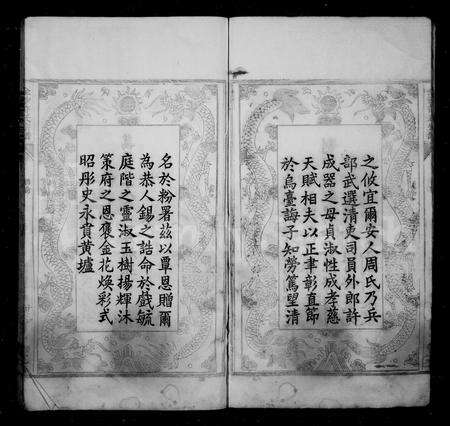 之攸宜爾安人周氏乃兵
部武選清吏司員外郎許
成器之母貞淑性成孝慈
天賦相夫以正聿彰直節
於烏臺誨子知勞篤望清
名於粉署茲以覃恩贈爾
為恭人錫之誥命於戲毓
庭階之靈淑玉樹揚輝沐
策府之恩褒金花煥彩式
昭彤史永賁黃壚